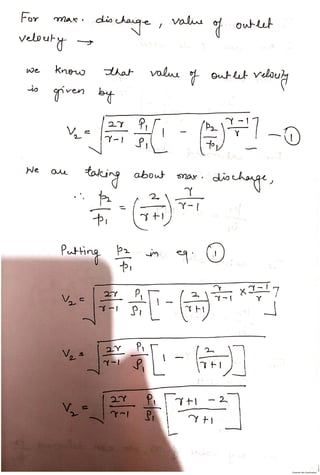 For max. discharge, value of outlet
velouty →
we know that value of outlet velouty
is given by
V₂ = √(2γ/(γ-1) P₁/ρ₁ [1 - (p₂/p₁)^((γ-1)/γ)]) — ①
We are taking about max. discharge,
∴ p₂/p₁ = (2/(γ+1))^(γ/(γ-1))
Putting p₂/p₁ in eq. ①
V₂ = √(2γ/(γ-1) P₁/ρ₁ [1 - (2/(γ+1))^(γ/(γ-1) × (γ-1)/γ)])
V₂ = √(2γ/(γ-1) P₁/ρ₁ [1 - (2/(γ+1))])
V₂ = √(2γ/(γ-1) P₁/ρ₁ [(γ+1-2)/(γ+1)])